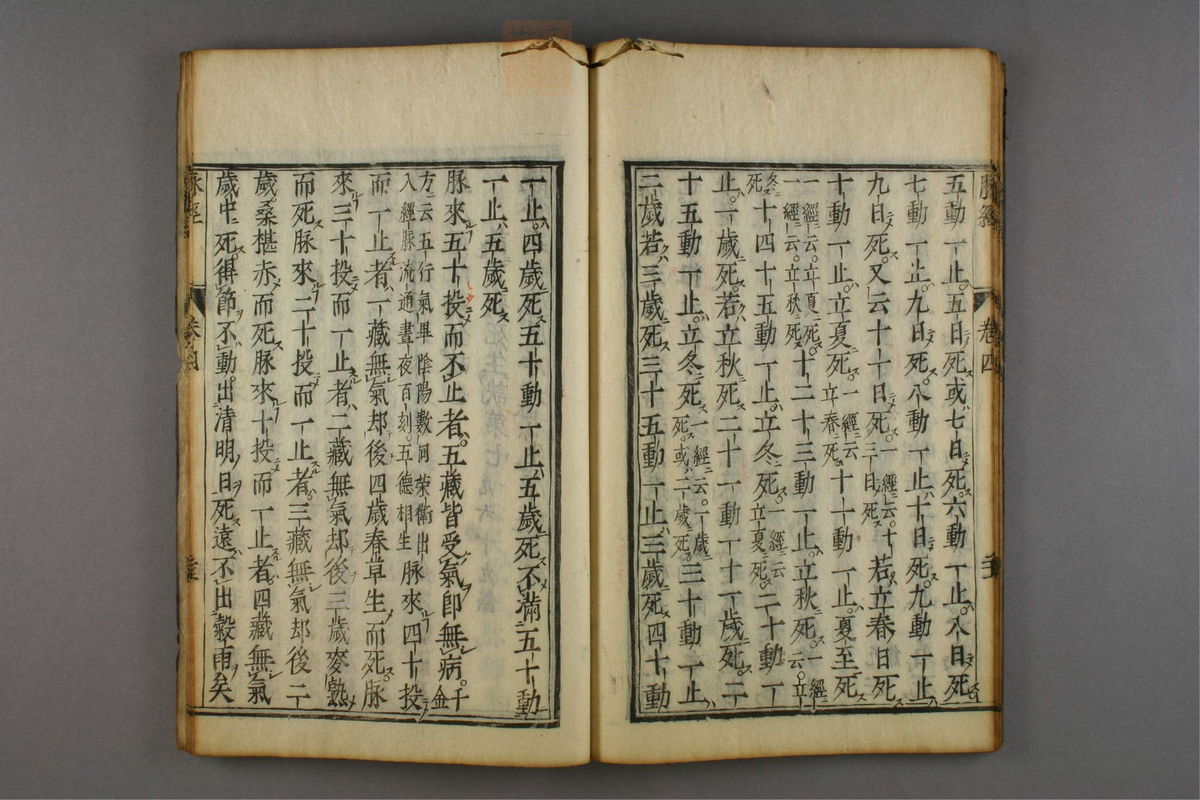 脉經 卷四
五動一止五日死或七日死六動一止八日死
七動一止九日死八動一止十日死九動一止
九日死又云十一日死一經云十三日死若立春日死
十動一止立夏死一經云立春死十一動一止夏至死
一經云立夏死一經云立秋死十二十三動一止立秋死一經云立
冬死十四十五動一止立冬死一經云立夏死二十動一
止一歲死若立秋死二十一動一止一歲死二
十五動一止立冬死一經云一歲死或二歲死三十動一止
二歲若三歲死三十五動一止三歲死四十動
一止四歲死五十動一止五歲死不滿五十動
一止五歲死
脉來五十投而不止者五藏皆受氣即無病千金
方云五行氣畢陰陽數同榮衛出入經脉流通晝夜百刻五德相生脉來四十投
而一止者一藏無氣却後四歲春草生而死脉
來三十投而一止者二藏無氣却後三歲麥熟
而死脉來二十投而一止者三藏無氣却後二
歲桑椹赤而死脉來十投而一止者四藏無氣
歲中死得節不動出清明日死遠不出穀雨矣
脉經 卷四